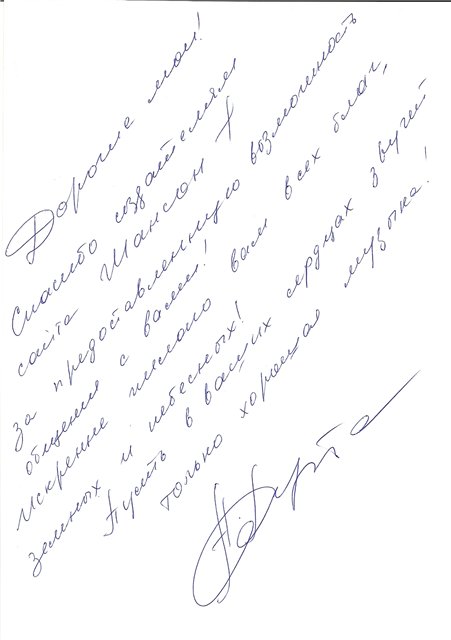 Дорогие мои!
Спасибо создателям
сайта Шансон
за предоставленную возможность
общения с вами!
Искренне желаю вам всех благ,
земных и небесных!
Пусть в ваших сердцах звучит
только хорошая музыка!